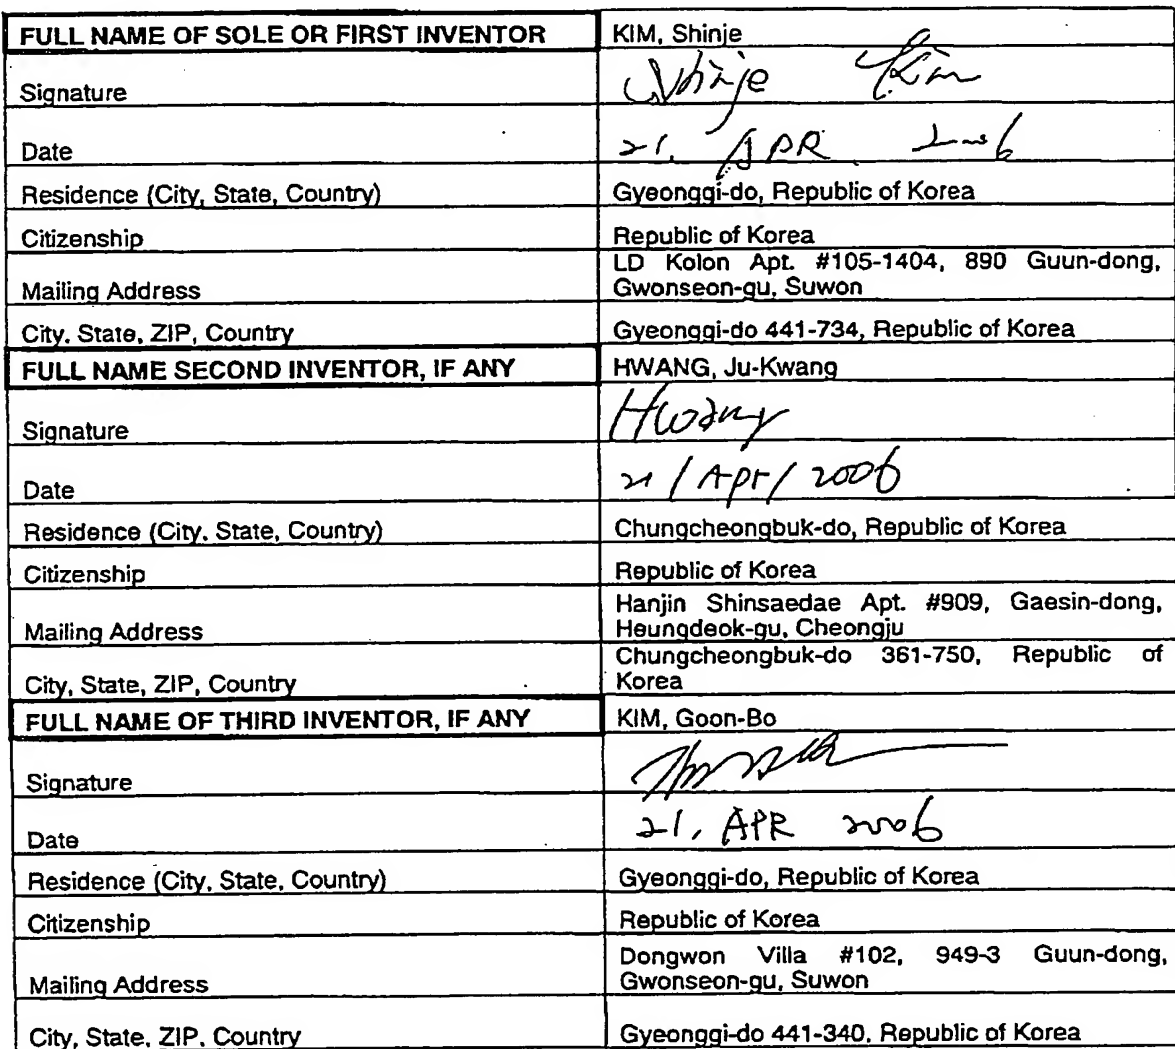 FULL NAME OF SOLE OR FIRST INVENTOR KIM, Shinje
Signature Shinje Kim
Date 21, APR 2006
Residence (City, State, Country) Gyeonggi-do, Republic of Korea
Citizenship Republic of Korea
Mailing Address LD Kolon Apt. #105-1404, 890 Guun-dong,
Gwonseon-gu, Suwon
City, State, ZIP, Country Gyeonggi-do 441-734, Republic of Korea
FULL NAME SECOND INVENTOR, IF ANY HWANG, Ju-Kwang
Signature Hwang
Date 21/Apr/2006
Residence (City, State, Country) Chungcheongbuk-do, Republic of Korea
Citizenship Republic of Korea
Mailing Address Hanjin Shinsaedae Apt. #909, Gaesin-dong,
Heungdeok-gu, Cheongju
City, State, ZIP, Country Chungcheongbuk-do 361-750, Republic of
Korea
FULL NAME OF THIRD INVENTOR, IF ANY KIM, Goon-Bo
Signature
Date 21, APR 2006
Residence (City, State, Country) Gyeonggi-do, Republic of Korea
Citizenship Republic of Korea
Mailing Address Dongwon Villa #102, 949-3 Guun-dong,
Gwonseon-gu, Suwon
City, State, ZIP, Country Gyeonggi-do 441-340, Republic of Korea